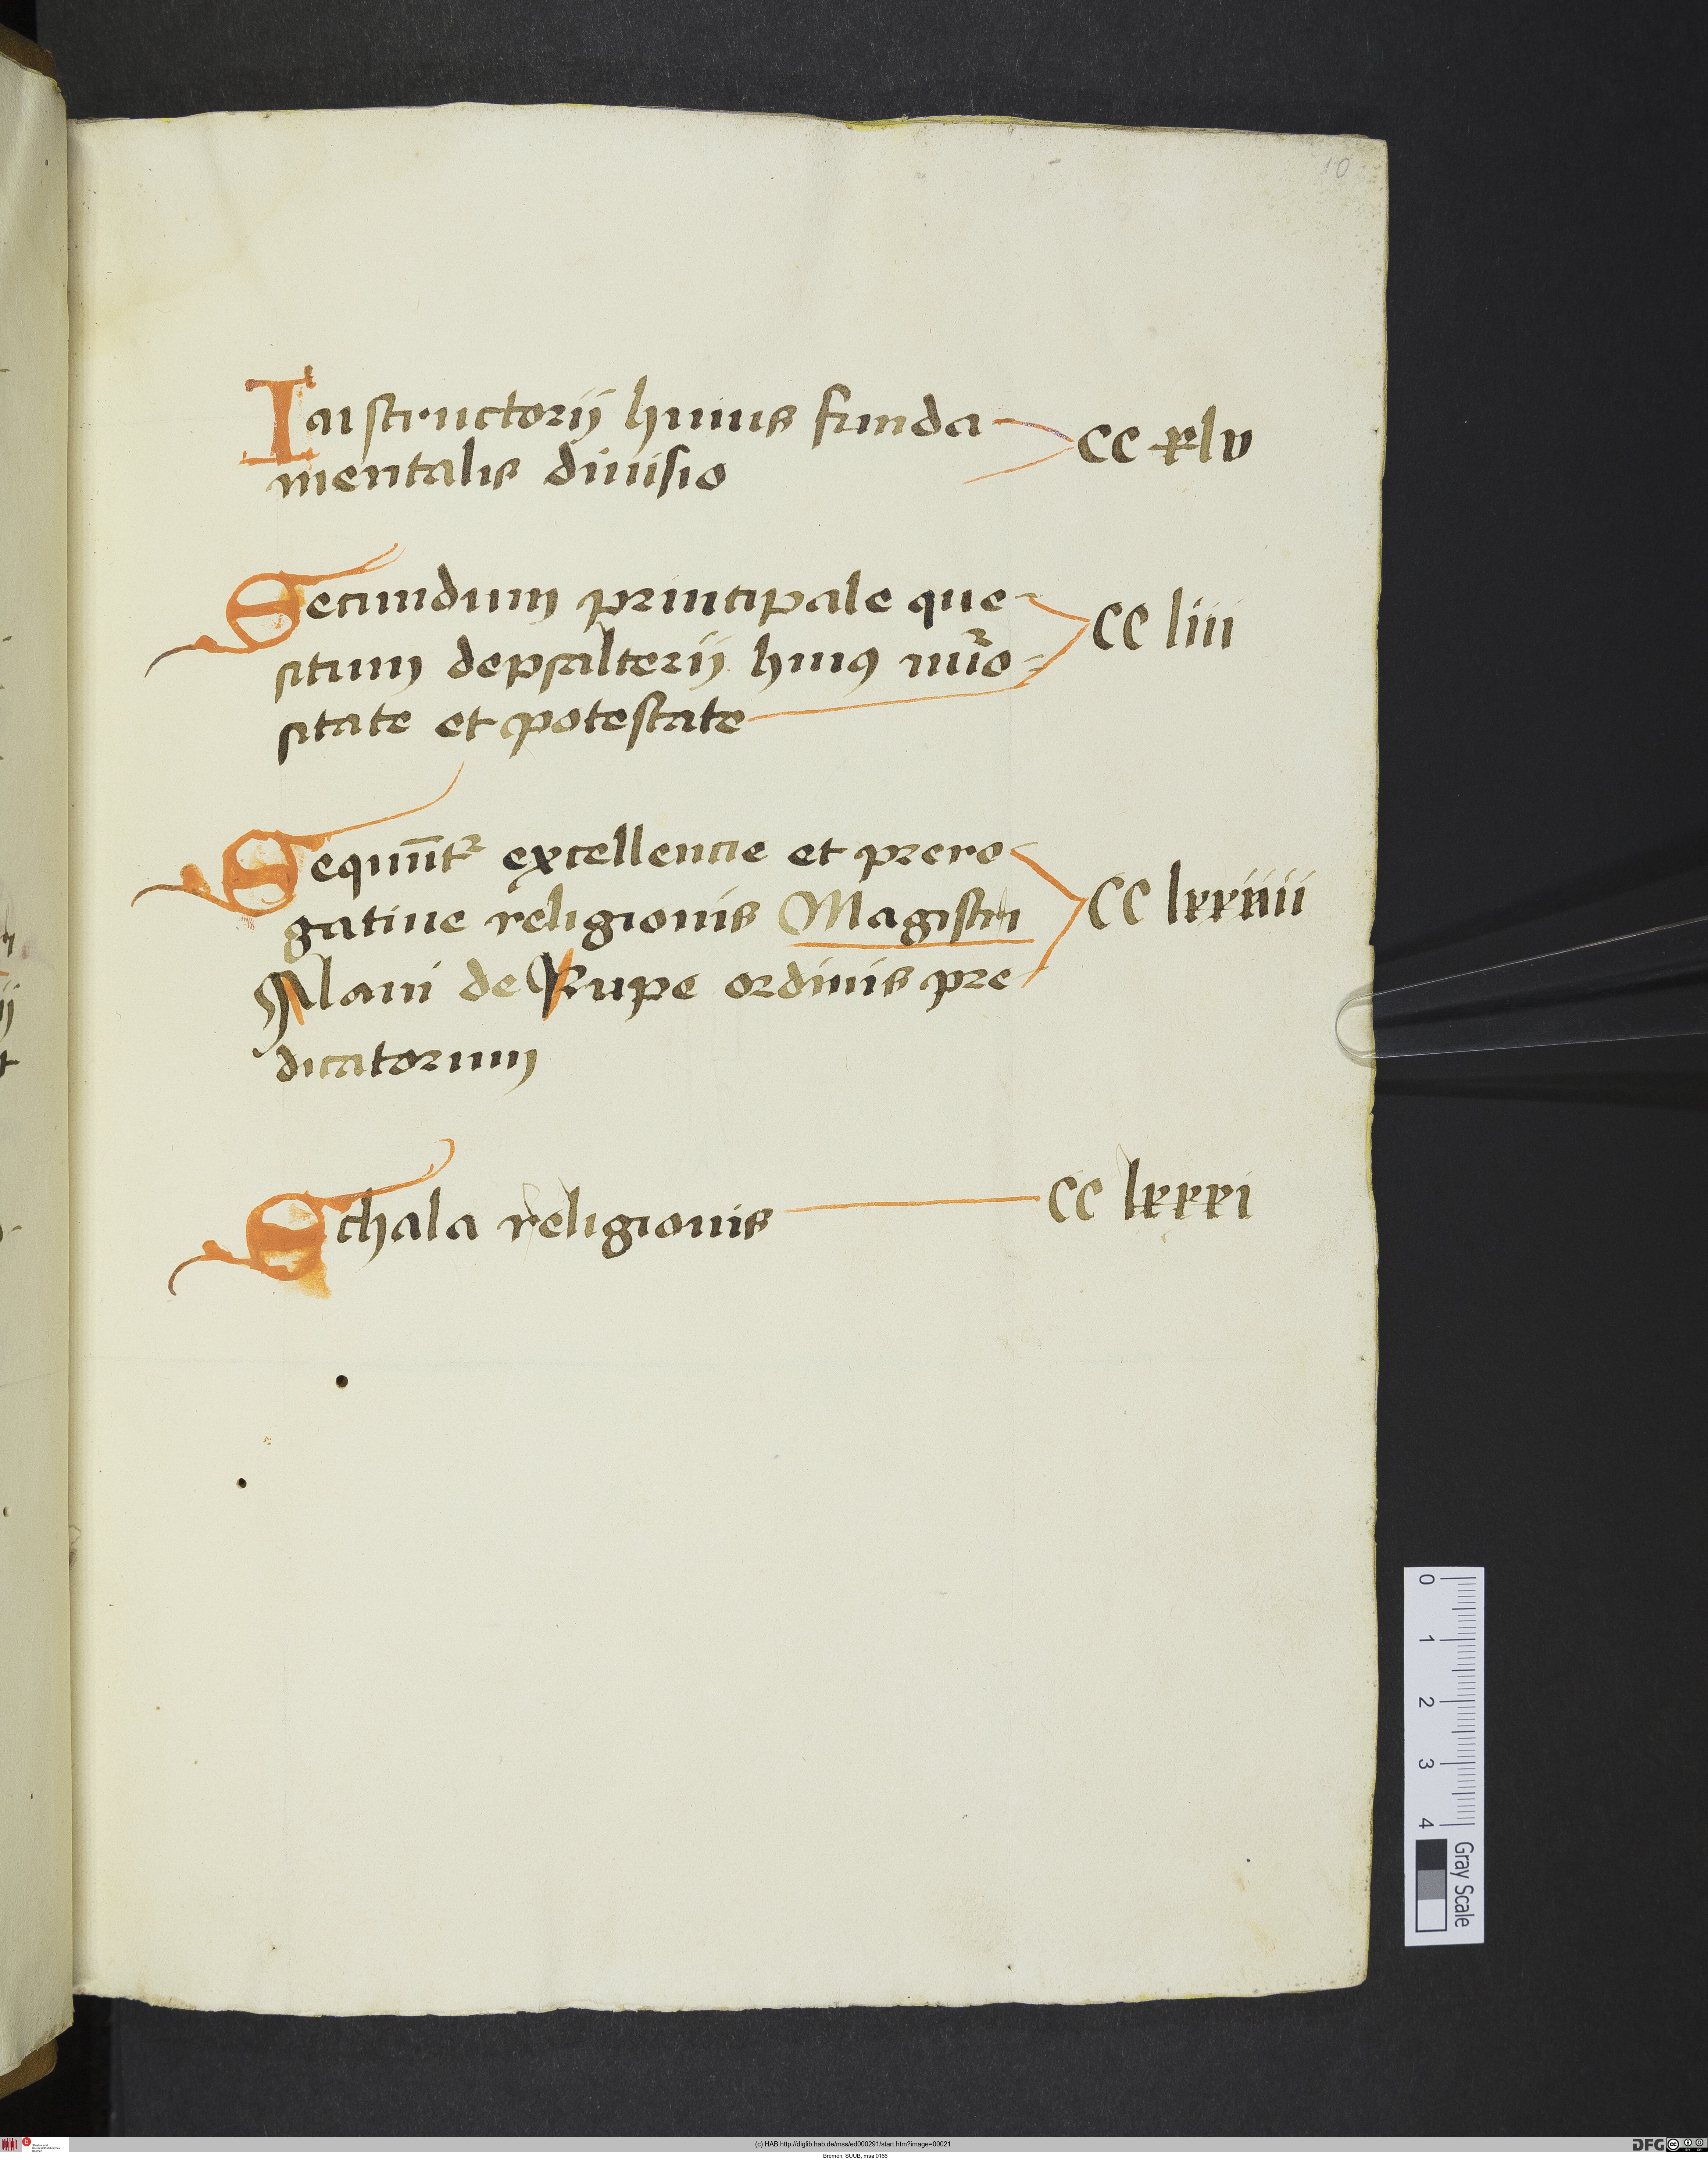 10
Instructorij huius funda CC xlv
mentalis diuisio
Secundum principale que
situm de psalterij huiꝯ nũro CC liiii
sitate et potestate
Sequũtr excellencie et prero
gatiue religionis Magistri CC lxxiiiii
Alani de Rupe ordinis pre
dicatorum
Schala religionis CC lxxxi
0 1 2 3 4 Gray Scale
(c) HAB http://diglib.hab.de/mss/ed000291/start.htm?image=00021
Bremen, SUUB, msa 0166
DFG